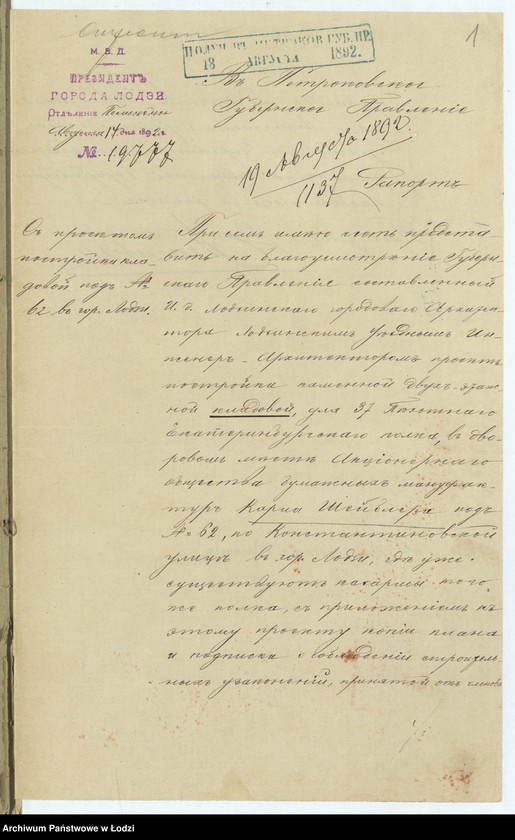 1
М. В. Д.
ПРЕЗИДЕНТЪ
ГОРОДА ЛОДЗИ.
Отдѣленіе
Августа 17 дня 1892 г.
№ 19777
ПОЛУЧ. ВЪ ПЕТРОКОВ. ГУБ. ПР.
18 АВГУСТА 1892.
Въ Петроковское
Губернское Правленіе
19 Августа 1892.
1137
Рапортъ
Съ проектомъ
постройки кла-
довой подъ №
62 въ гор. Лодзи.
При семъ имѣю честь предста-
вить на благоусмотрѣніе Губерн-
скаго Правленія составленный
И. д. Лодзинскаго городоваго Архитек-
тора Лодзинскимъ Уѣзднымъ Ин-
женеръ-Архитекторомъ проектъ
постройки каменной двухъ-этаж-
ной кладовой, для 37 Пѣхотнаго
Екатеринбургскаго полка, въ дво-
ровомъ мѣстѣ Акціонернаго
общества бумажныхъ мануфак-
туръ Карла Шейблера подъ
№ 62, по Константиновской
улицѣ въ гор. Лодзи, гдѣ уже
существуютъ казармы того
же полка, съ приложеніемъ къ
этому проекту копіи плана
и подписки о соблюденіи строитель-
ныхъ узаконеній, принятой отъ членовъ
Archiwum Państwowe w Łodzi